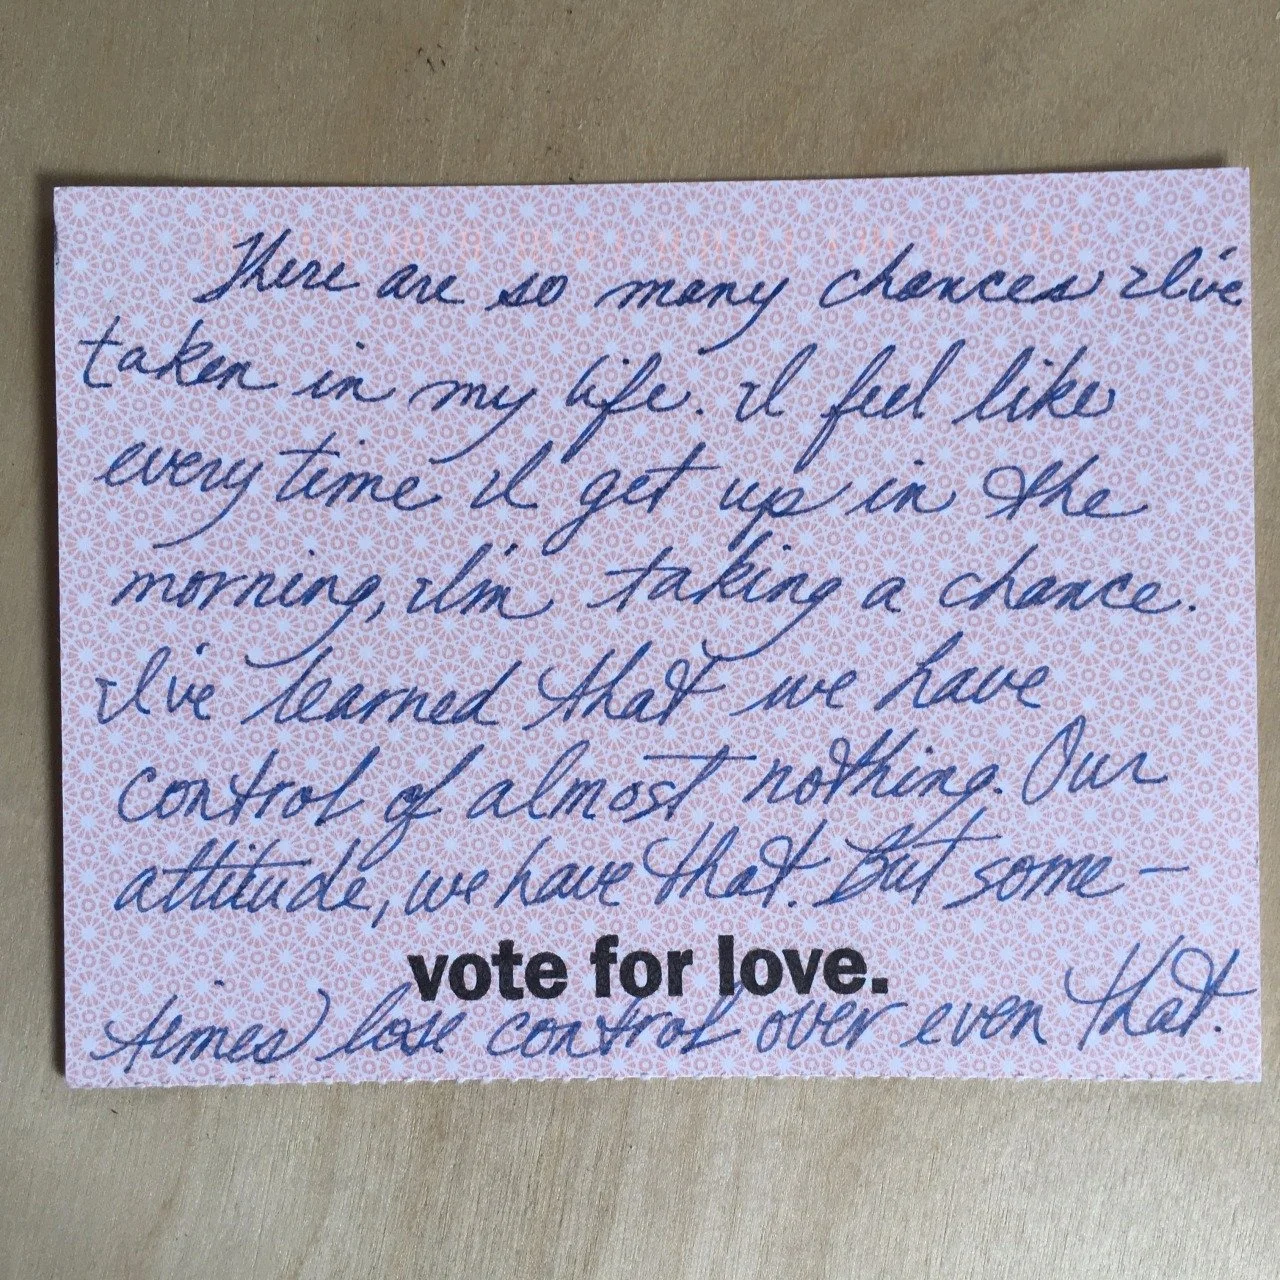 There are so many chances I've
taken in my life. I feel like
every time I get up in the
morning, I'm taking a chance.
I've learned that we have
control of almost nothing. Our
attitude, we have that. But some-
vote for love.
times lose control over even that.